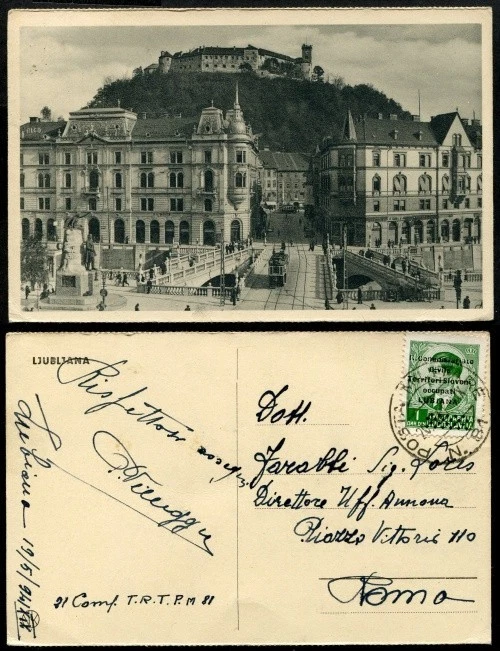 LJUBLJANA
Rispettosi
Lubiana 19/5/941 XIX
21 Comp. T.R.T. P.M 81
Dott.
Sig.
Direttore Uff. Annona
Piazza Vittorio 110
Roma
R. Commissariato
Civile
Territori Sloveni
occupati
LUBIANA
1
POSTA
N. 81